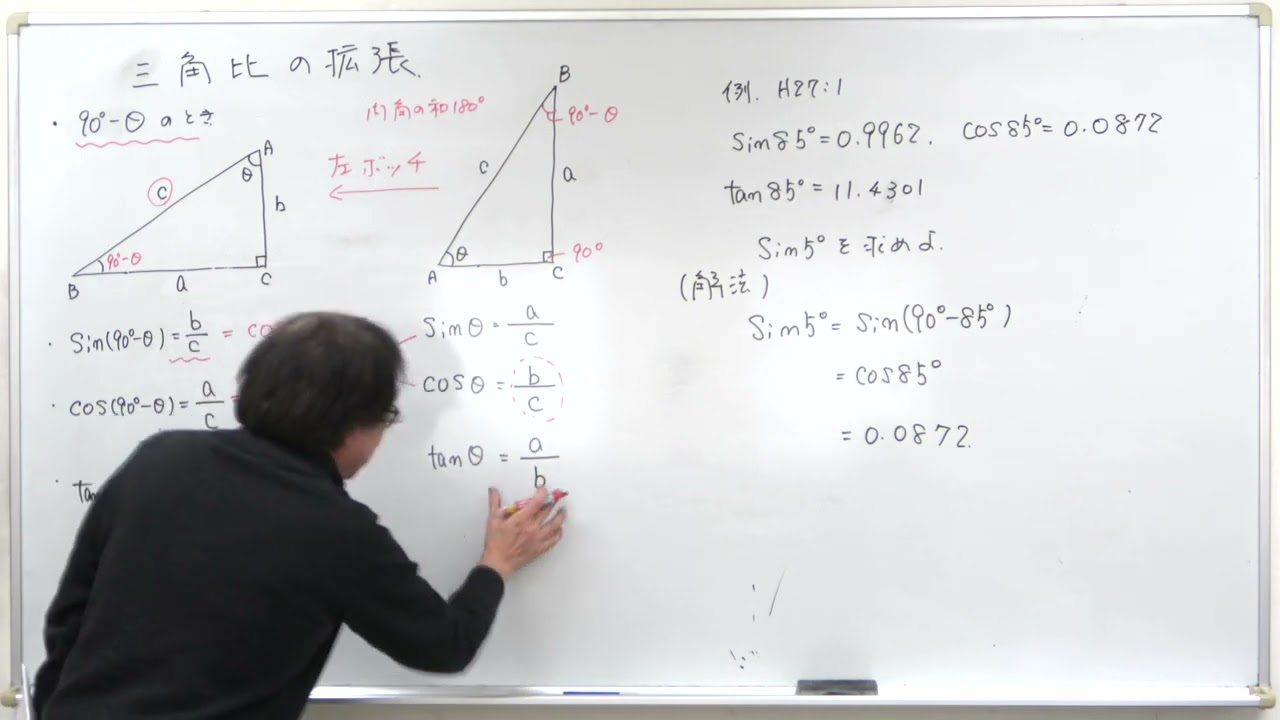 三角比の拡張.
・90°-θのとき
A
θ
c
b
90°-θ
B
a
C
内角の和180°
左ボッチ
B
90°-θ
c
a
θ
90°
A
b
C
・Sin(90°-θ)=b/c = co
・cos(90°-θ)=a/c =
・tan
Sinθ=a/c
cosθ=b/c
tanθ=a/b
例. H27:1
sin85°=0.9962. cos85°=0.0872
tan85°=11.4301
Sin5°を求めよ.
(解法)
Sin5°=Sin(90°-85°)
=cos85°
=0.0872.